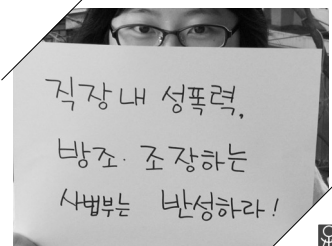 직장 내 성폭력,
방조·조장하는
사법부는 반성하라!